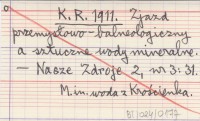 K. R. 1911. Zjazd
przemysłowo-balneologiczny
a sztuczne wody mineralne.
— Nasze Zdroje 2, nr 3: 31.
M. in. woda z Krościenka.